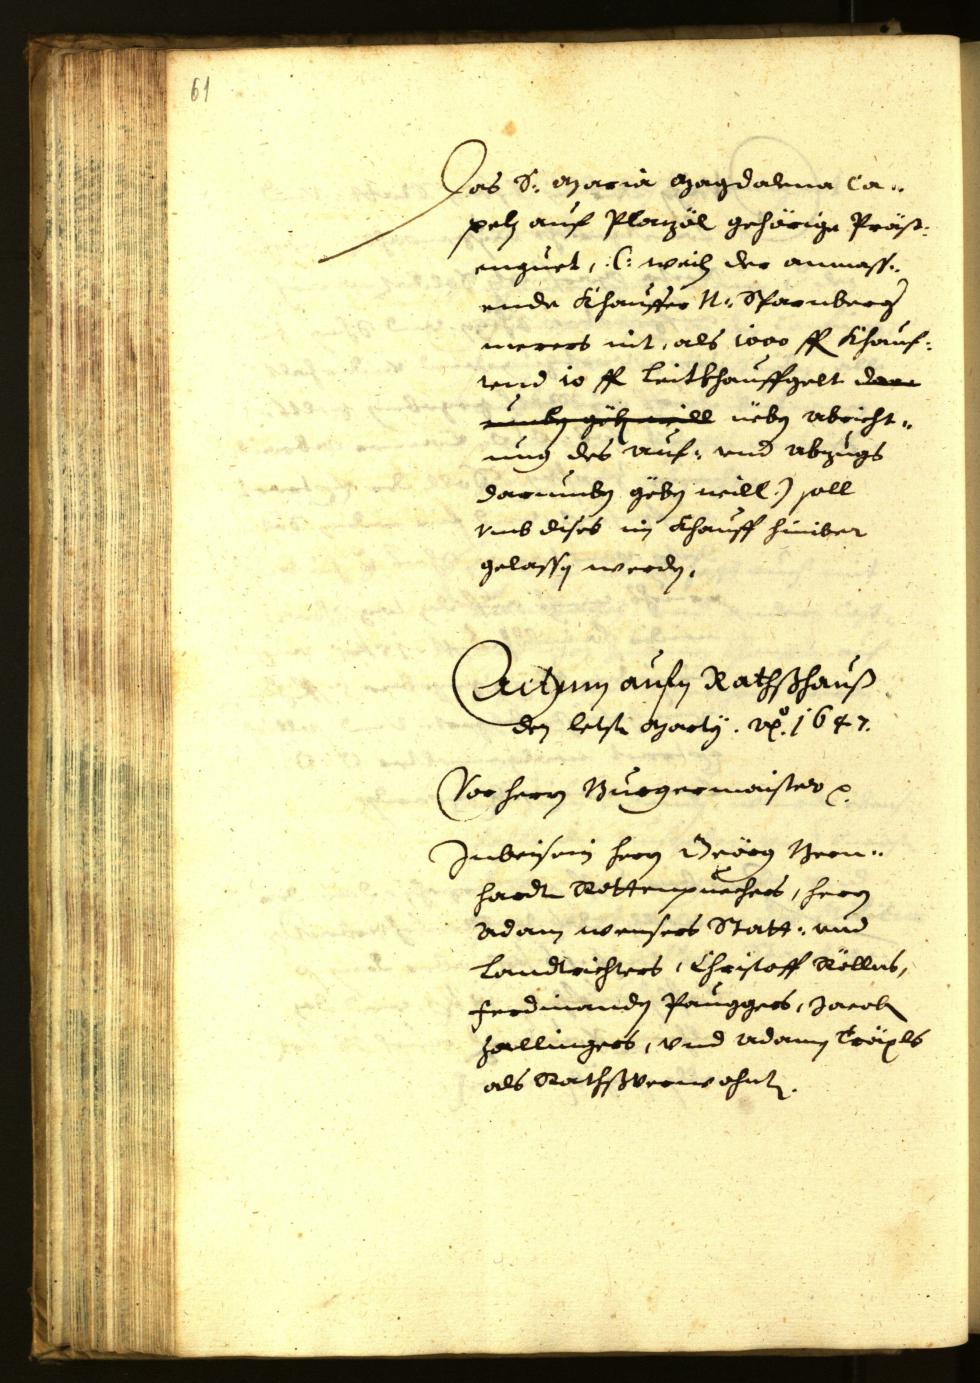 61
Das S: Maria Magdalena Ca„
pelh auf Plazöl gehörige Präst„
enguet, /: weilh der anmass„
ende Khauffer N: Sparnberg
merers nit, als 1000 fl Khauf„
und 10 fl Leitkhauffgelt dar
umben göben will neben abricht„
ung des auf: und abzugs
darumben göben will :) soll
umb dises im Khauff hiniber
gelassen werden.
Actum aufm Rathßhauß
den letsten Marty. ao. 1647.
Vor herrn Burgermaister p.
Inbeisein herrn Geörg Bern„
hardt Rottenpuechers, herrn
Adam Weinsers Statt: und
Landtrichters, Christoff Köllns,
Ferdinanden Pauggers, Jacob
Zallingers, und Adamen Träpls
als Rathßverwohnte.